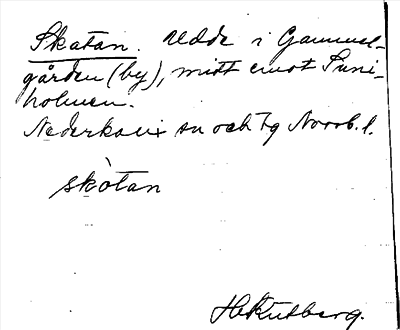 Skatan. Udde i Gammel-
gården (by), mitt emot Suni-
holmen.
Nederkalix sn och tg Norrb. l.
skòtan